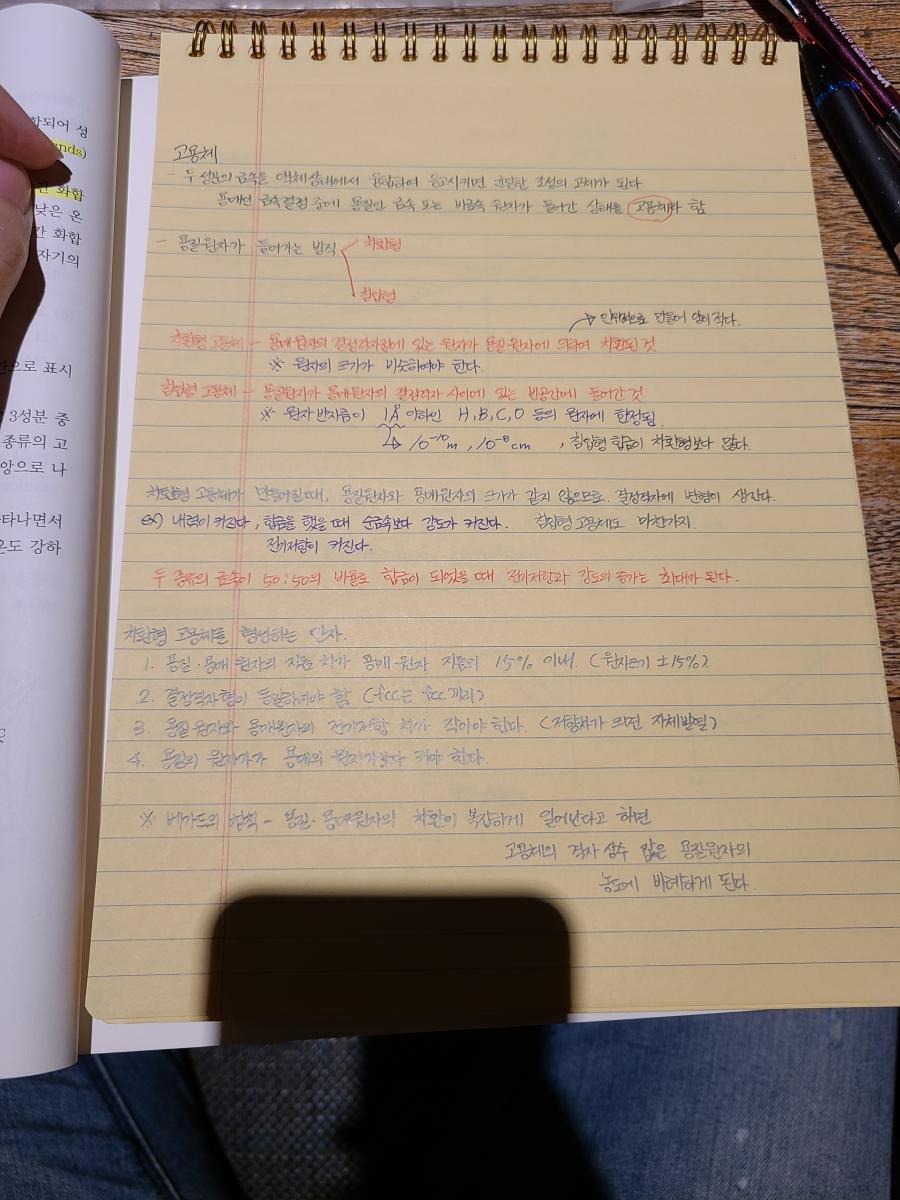 함되어 성
nds)
간 화합
낮은 온
간 화합
자기의
안으로 표시
3성분 중
종류의 고
앙으로 나
타나면서
온도 강하
고용체
- 두 성분의 금속을 액체상태에서 융합하여 응고시키면 균일한 조성의 고체가 된다
용매인 금속결정 중에 용질인 금속 또는 비금속 원자가 들어간 상태를 고용체라 함
- 용질원자가 들어가는 방식
치환형
침입형
→ 인위적으로 만들어 양이 적다.
치환형 고용체 - 용매원자의 결정격자점에 있는 원자가 용질원자에 의하여 치환된 것
※ 원자의 크기가 비슷하여야 한다.
침입형 고용체 - 용질원자가 용매원자의 결정격자 사이에 있는 빈공간에 들어간 것
※ 원자 반지름이 1Å 이하인 H, B, C, O 등의 원자에 한정됨.
→ 10⁻¹⁰m, 10⁻⁸cm , 침입형 합금이 치환형보다 많다.
치환형 고용체가 만들어질때, 용질원자와 용매원자의 크기가 같지 않으므로 결정격자에 변형이 생긴다.
ex) 내력이 커진다, 합금을 했을 때 순금속보다 강도가 커진다. 침입형 고용체도 마찬가지.
전기저항이 커진다.
두 종류의 금속이 50:50의 비율로 합금이 되었을 때 전기저항과 강도의 증가는 최대가 된다.
치환형 고용체를 형성하는 인자.
1. 용질·용매 원자의 지름 차가 용매 원자 지름의 15% 이내. (원자크기 ±15%)
2. 결정격자형이 동일하여야 함 (fcc는 fcc끼리)
3. 용질원자와 용매원자의 전기저항 차가 작아야 한다. (저항차가 크면 자체발열)
4. 용질의 원자가가 용매의 원자가보다 커야 한다.
※ 베가드의 법칙 - 용질·용매원자의 치환이 복잡하게 일어난다고 하면
고용체의 격자 상수 값은 용질원자의
농도에 비례하게 된다.